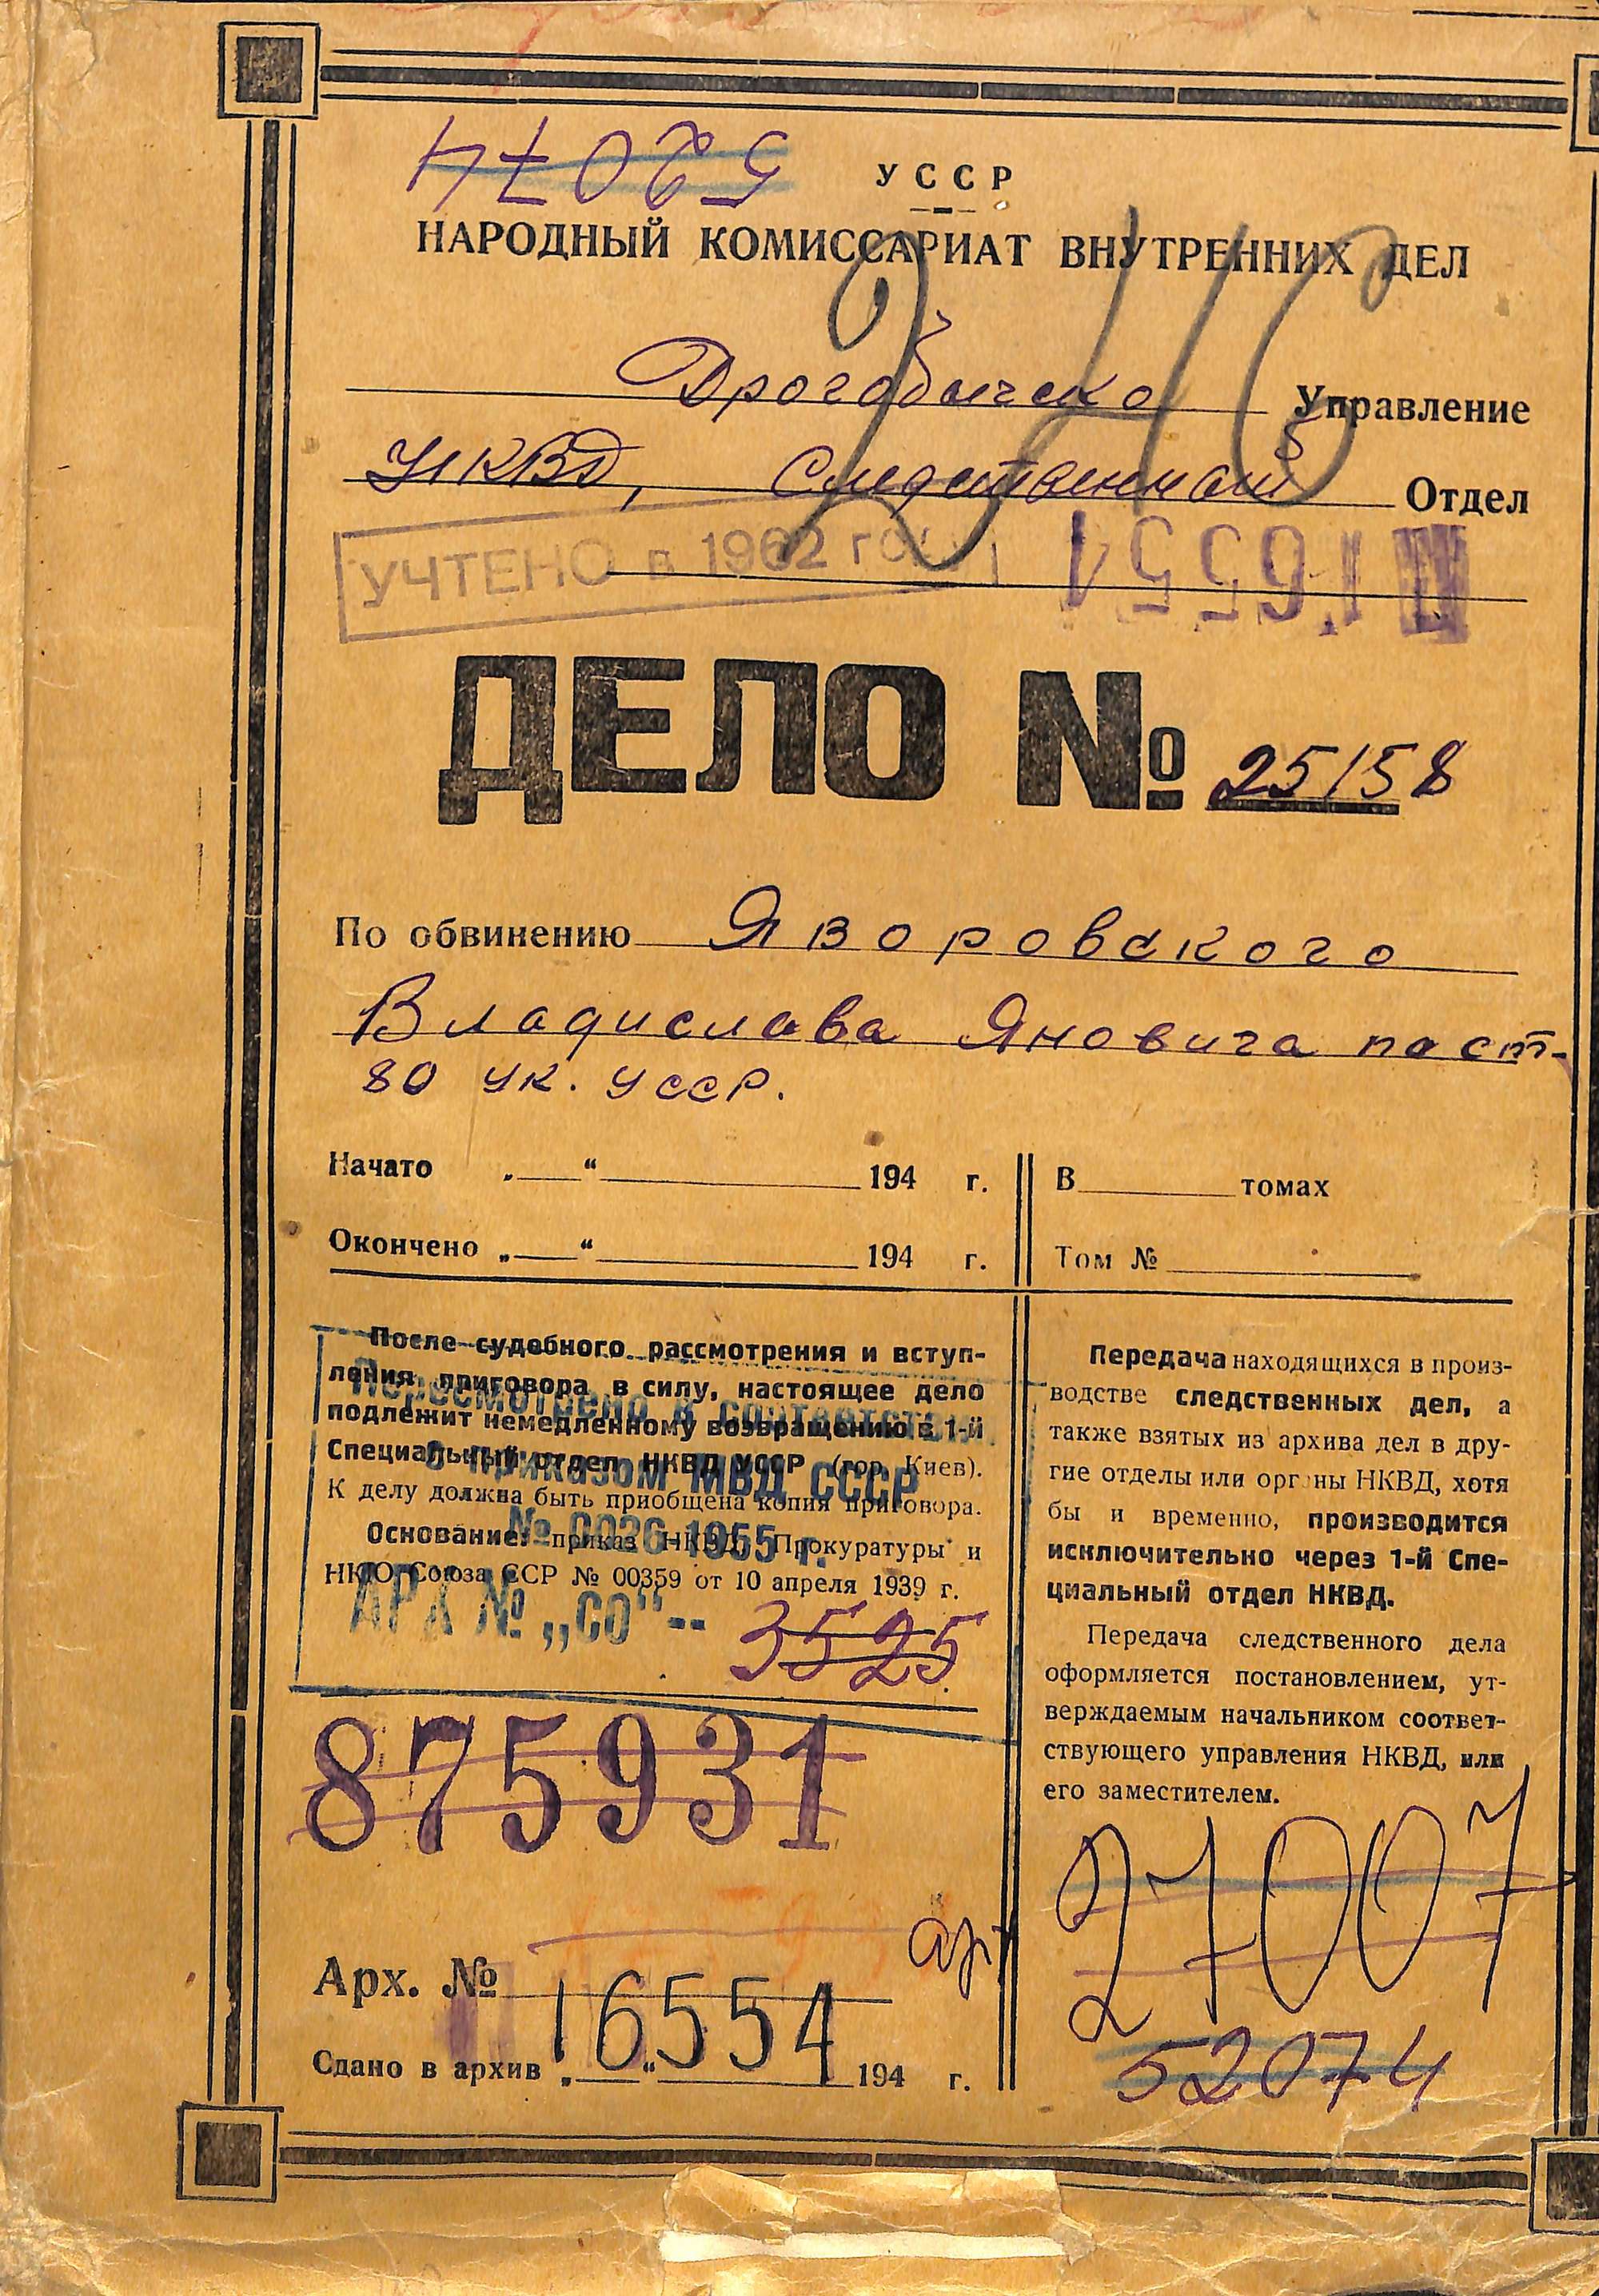 52074
УССР
НАРОДНЫЙ КОМИССАРИАТ ВНУТРЕННИХ ДЕЛ
Дрогобычско Управление
УНКВД, Следственный Отдел
УЧТЕНО в 1962 году
16554
ДЕЛО № 25158
По обвинению Яворовского
Владислава Яновича по ст.
80 УК. УССР.
Начато „ “ 194 г.
Окончено „ “ 194 г.
В томах
Том №
После судебного рассмотрения и вступ-
ления приговора в силу, настоящее дело
подлежит немедленному возвращению в 1-й
Специальный отдел НКВД УССР (гор. Киев).
К делу должна быть приобщена копия приговора.
Основание: приказ НКВД, Прокуратуры и
НКЮ Союза ССР № 00359 от 10 апреля 1939 г.
Пересмотрено в соответствии
с приказом МВД СССР
№ 0026-1955 г.
АРХ № „СО“-- 3525
875931
Арх. № 16554
Сдано в архив „ “ 194 г.
Передача находящихся в произ-
водстве следственных дел, а
также взятых из архива дел в дру-
гие отделы или органы НКВД, хотя
бы и временно, производится
исключительно через 1-й Спе-
циальный отдел НКВД.
Передача следственного дела
оформляется постановлением, ут-
верждаемым начальником соответ-
ствующего управления НКВД, или
его заместителем.
21007
52074